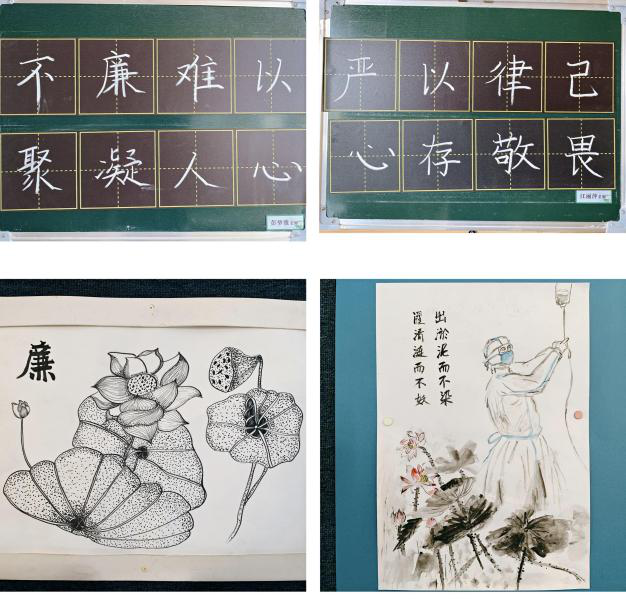 不廉难以
聚凝人心
严以律己
心存敬畏
廉
出淤泥而不染
濯清涟而不妖